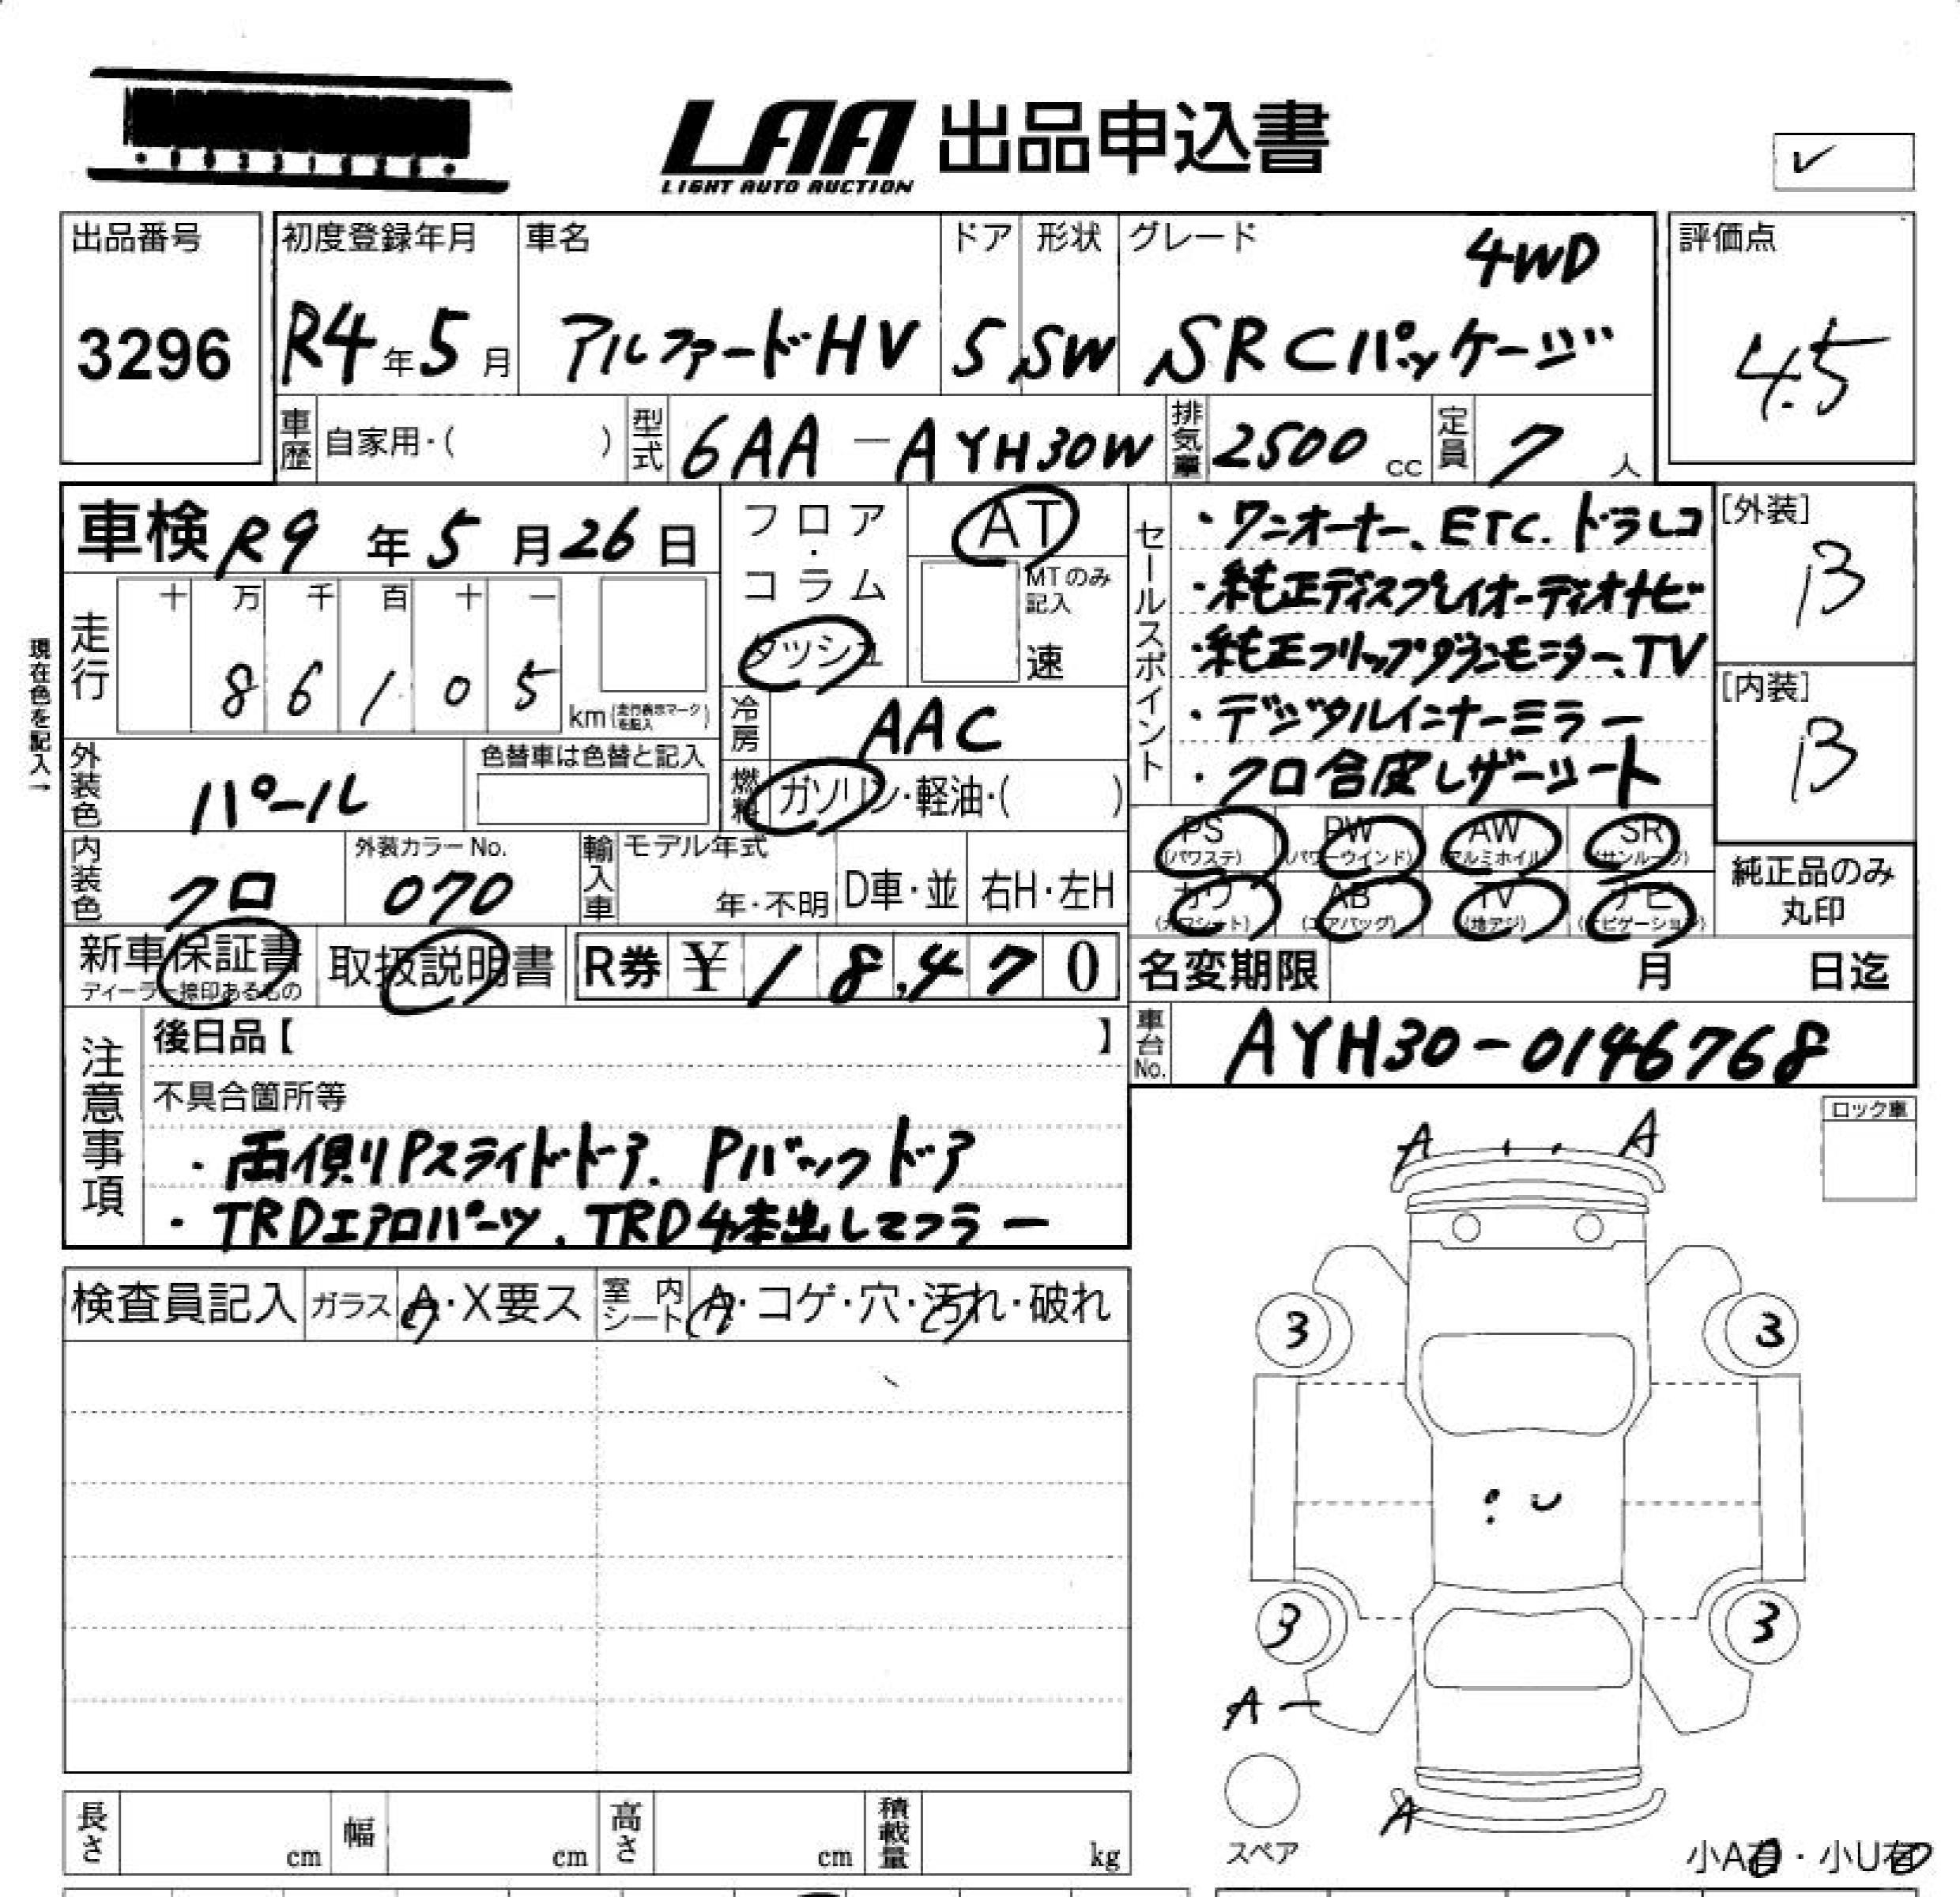 LAA 出品申込書
LIGHT AUTO AUCTION
出品番号
3296
初度登録年月
R4年5月
車名
アルファードHV
ドア
5
形状
SW
グレード
4WD
SR Cパッケージ
評価点
4.5
車歴 自家用・( )
型式 6AA-AYH30W
排気量 2500 cc
定員 7 人
車検 R9年5月26日
フロア・コラム
ダッシュ
AT
MTのみ記入
速
セールスポイント
・ワンオーナー、ETC. ドラレコ
・純正ディスプレイオーディオナビ
・純正フリップダウンモニター、TV
・デジタルインナーミラー
・クロ合皮レザーシート
[外装]
B
[内装]
B
現在色を記入→
走行
十 万 千 百 十 一
8 6 1 0 5
km(走行表示マークを記入)
冷房 AAC
外装色 パール
色替車は色替と記入
燃料 ガソリン・軽油・( )
PS (パワステ)
PW (パワーウインド)
AW (アルミホイル)
SR (サンルーフ)
カワ (カワシート)
AB (エアバッグ)
TV (地デジ)
ナビ (ナビゲーション)
純正品のみ丸印
内装色 クロ
外装カラーNo.
070
輸入車
モデル年式
年・不明
D車・並
右H・左H
新車保証書
ディーラー捺印あるもの
取扱説明書
R券 ¥ 18,470
名変期限 月 日迄
車台No. AYH30-0146768
注意事項
後日品【 】
不具合箇所等
・両側Pスライドドア、Pバックドア
・TRDエアロパーツ、TRD4本出しマフラー
ロック車
A A
検査員記入
ガラス A・X要ス
室内シート A・コゲ・穴・汚れ・破れ
3 3
3 3
A
A
スペア
小A有・小U有
長さ cm
幅 cm
高さ cm
積載量 kg